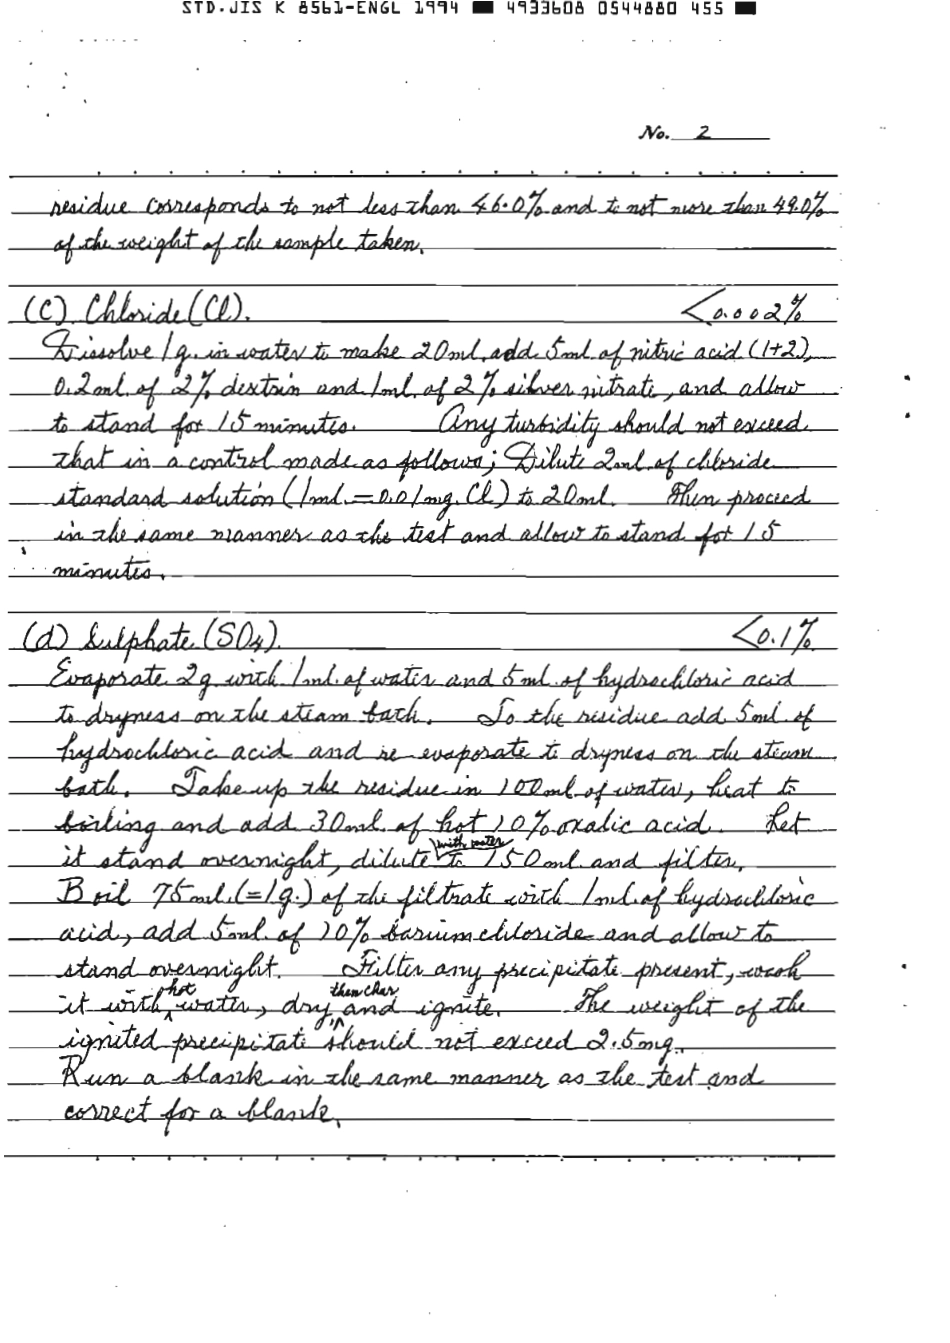 STD.JIS K 8561-ENGL 1994 ■ 4933608 0544880 455 ■
No. 2
residue corresponds to not less than 46.0% and to not more than 49.0%
of the weight of the sample taken.
(C) Chloride (Cl). <0.002%
Dissolve 1g. in water to make 20ml, add 5ml. of nitric acid (1+2),
0.2ml. of 2% dextrin and 1ml. of 2% silver nitrate, and allow
to stand for 15 minutes. Any turbidity should not exceed
that in a control made as follows; Dilute 2ml. of chloride
standard solution (1ml. = 0.01mg. Cl) to 20ml. Then proceed
in the same manner as the test and allow to stand for 15
minutes.
(d) Sulphate (SO4). <0.1%
Evaporate 2g with 1ml. of water and 5ml. of hydrochloric acid
to dryness on the steam bath. To the residue add 5ml. of
hydrochloric acid and re-evaporate to dryness on the steam
bath. Take up the residue in 100ml. of water, heat to
boiling and add 30ml. of hot 10% oxalic acid. Let
it stand overnight, dilute with water to 150ml and filter.
Boil 75ml. (=1g.) of the filtrate with 1ml. of hydrochloric
acid, add 5ml. of 10% barium chloride and allow to
stand overnight. Filter any precipitate present, wash
it with hot water, dry then char and ignite. The weight of the
ignited precipitate should not exceed 2.5mg.
Run a blank in the same manner as the test and
correct for a blank.